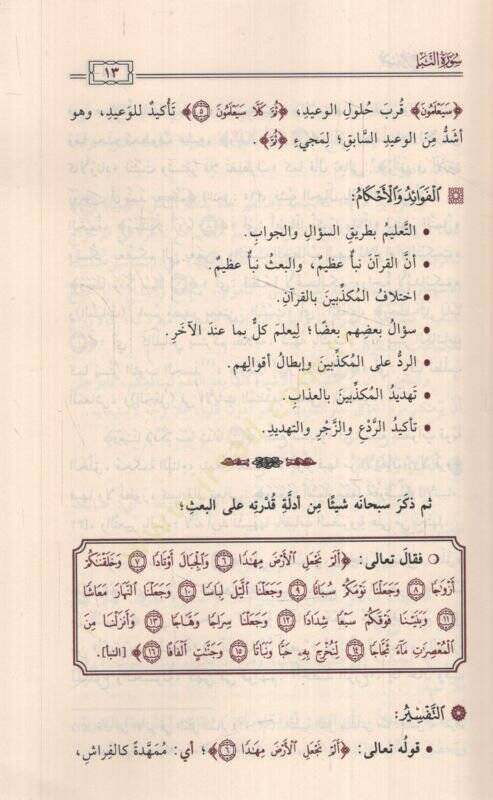 سُورَةُ النَّبَإِ
١٣
﴿سَيَعْلَمُونَ﴾ قُربَ حُلولِ الوعيدِ، ﴿ثُمَّ كَلَّا سَيَعْلَمُونَ ۝٥﴾ تأكيدٌ للوَعيدِ، وهو
أشَدُّ مِنَ الوعيدِ السَّابقِ؛ لِمَجيءِ ﴿ثُمَّ﴾.
الفَوَائِدُ وَالأَحْكَامُ:
• التَّعليمُ بطريقِ السؤالِ والجوابِ.
• أنَّ القرآنَ نبأٌ عظيمٌ، والبعثَ نبأٌ عظيمٌ.
• اختلافُ المكذِّبينَ بالقرآنِ.
• سؤالُ بعضِهم بعضًا؛ لِيعلمَ كلٌّ بما عندَ الآخَرِ.
• الردُّ على المكذِّبينَ وإبطالُ أقوالِهم.
• تَهديدُ المُكذِّبينَ بالعذابِ.
• تأكيدُ الرَّدْعِ والزَّجْرِ والتهديدِ.
ثم ذكَرَ سبحانَه شيئًا مِن أدلَّةِ قُدْرَتِه على البعثِ؛
○ فقالَ تعالى: ﴿أَلَمْ نَجْعَلِ الْأَرْضَ مِهَادًا ۝٦ وَالْجِبَالَ أَوْتَادًا ۝٧ وَخَلَقْنَاكُمْ
أَزْوَاجًا ۝٨ وَجَعَلْنَا نَوْمَكُمْ سُبَاتًا ۝٩ وَجَعَلْنَا اللَّيْلَ لِبَاسًا ۝١٠ وَجَعَلْنَا النَّهَارَ مَعَاشًا
۝١١ وَبَنَيْنَا فَوْقَكُمْ سَبْعًا شِدَادًا ۝١٢ وَجَعَلْنَا سِرَاجًا وَهَّاجًا ۝١٣ وَأَنزَلْنَا مِنَ
الْمُعْصِرَاتِ مَاءً ثَجَّاجًا ۝١٤ لِّنُخْرِجَ بِهِ حَبًّا وَنَبَاتًا ۝١٥ وَجَنَّاتٍ أَلْفَافًا ۝١٦﴾ [النبأ].
التَّفْسِيْرُ:
• قولُه تعالى: ﴿أَلَمْ نَجْعَلِ الْأَرْضَ مِهَادًا ۝٦﴾؛ أي: مُمَهَّدةً كالفِراشِ،